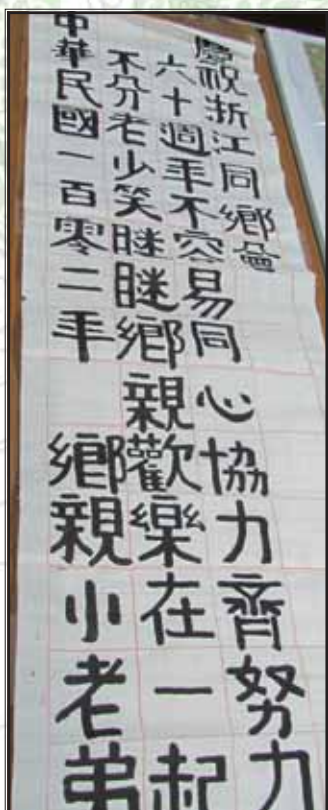 慶祝浙江同鄉會
六十週年不容易同心協力齊努力
不分老少笑瞇瞇鄉親歡樂在一起
中華民國一百零二年 鄉親小老弟